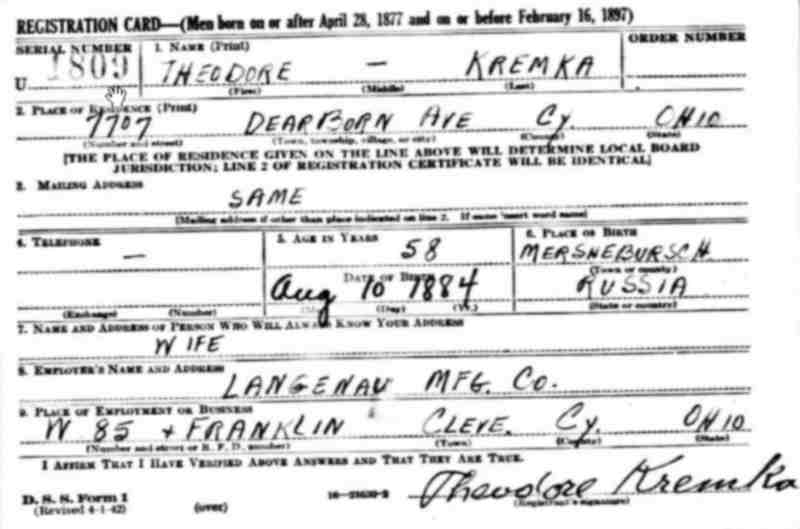 REGISTRATION CARD—(Men born on or after April 28, 1877 and on or before February 16, 1897)
SERIAL NUMBER 1. NAME (Print) ORDER NUMBER
U 1809 THEODORE — KREMKA
(First) (Middle) (Last)
2. PLACE OF RESIDENCE (Print)
7707 DEARBORN AVE Cy. OHIO
(Number and street) (Town, township, village, or city) (County) (State)
[THE PLACE OF RESIDENCE GIVEN ON THE LINE ABOVE WILL DETERMINE LOCAL BOARD
JURISDICTION; LINE 2 OF REGISTRATION CERTIFICATE WILL BE IDENTICAL]
3. MAILING ADDRESS
SAME
(Mailing address if other than place indicated on line 2. If same insert word same)
4. TELEPHONE 5. AGE IN YEARS 6. PLACE OF BIRTH
— 58 MERSHEBURSCH
DATE OF BIRTH (Town or county)
Aug 10 1884 RUSSIA
(Exchange) (Number) (Mo.) (Day) (Yr.) (State or country)
7. NAME AND ADDRESS OF PERSON WHO WILL ALWAYS KNOW YOUR ADDRESS
WIFE
8. EMPLOYER'S NAME AND ADDRESS
LANGENAU MFG. CO.
9. PLACE OF EMPLOYMENT OR BUSINESS
W 85 + FRANKLIN CLEVE. Cy. OHIO
(Number and street or R. F. D. number) (Town) (County) (State)
I AFFIRM THAT I HAVE VERIFIED ABOVE ANSWERS AND THAT THEY ARE TRUE.
D. S. S. Form 1 16—21630-2 Theodore Kremka
(Revised 4-1-42) (over) (Registrant's signature)